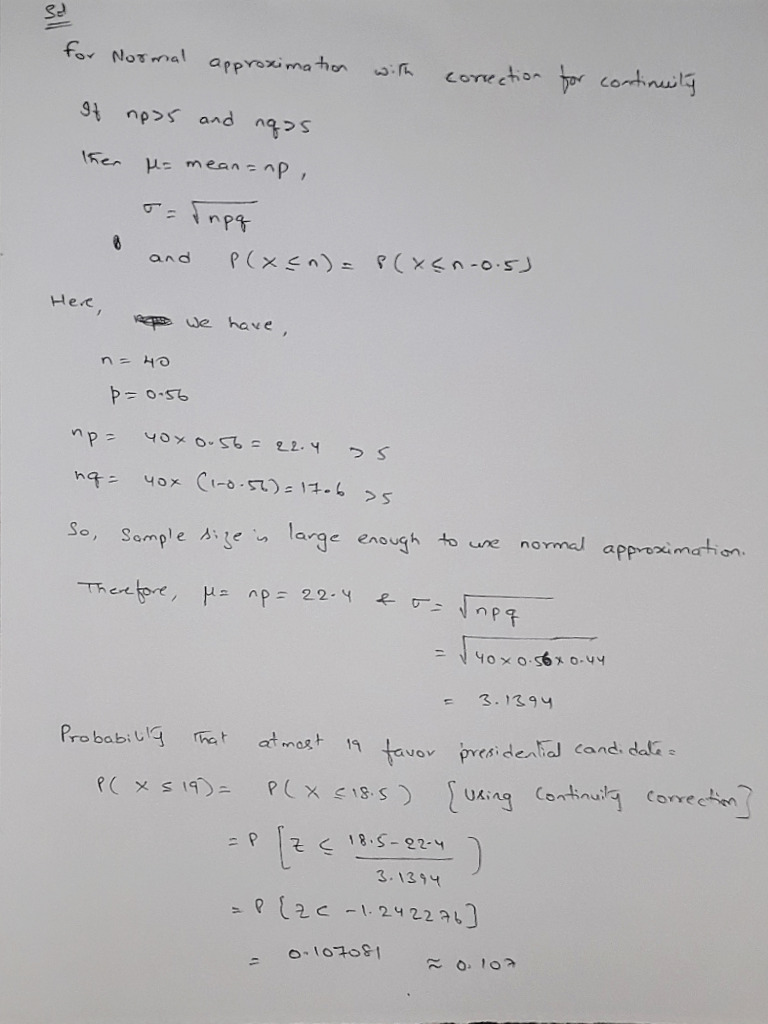 Sol
for Normal approximation with correction for continuity
If np>5 and nq>5
then μ= mean = np,
σ = √npq
and P(X≤n) = P(X≤n-0.5)
Here, we have,
n = 40
p = 0.56
np = 40×0.56 = 22.4 >5
nq = 40× (1-0.56) = 17.6 >5
So, Sample size is large enough to use normal approximation.
Therefore, μ= np = 22.4 & σ = √npq
= √40×0.56×0.44
= 3.1394
Probability that atmost 19 favor presidential candidate =
P( X ≤ 19) = P(X ≤ 18.5) [Using Continuity correction]
= P [Z ≤ 18.5-22.4
3.1394 ]
= P [Z< -1.242276]
= 0.107081 ≈ 0.107